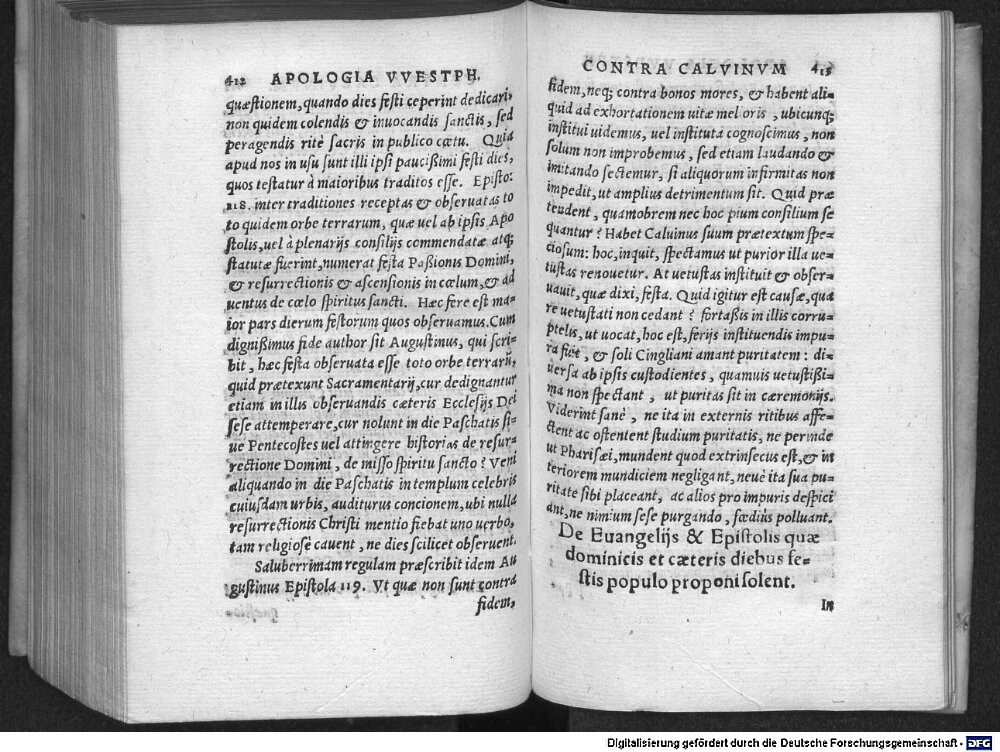 412 APOLOGIA VVESTPH.
quæstionem, quando dies festi ceperint dedicari,
non quidem colendis & inuocandis sanctis, sed
peragendis ritè sacris in publico cœtu. Quia
apud nos in usu sunt illi ipsi paucißimi festi dies,
quos testatur à maioribus traditos esse. Episto:
118. inter traditiones receptas & obseruatas to
to quidem orbe terrarum, quæ uel ab ipsis Apo
stolis, uel à plenarijs consilijs commendatæ atq;
statutæ fuerint, numerat festa Paßionis Domini,
& resurrectionis & ascensionis in cœlum, & ad
uentus de cœlo spiritus sancti. Hæc fere est ma=
ior pars dierum festorum quos obseruamus. Cum
dignißimus fide author sit Augustinus, qui scri=
bit, hæc festa obseruata esse toto orbe terrarũ,
quid prætexunt Sacramentarij, cur dedignantur
etiam in illis obseruandis cæteris Ecclesijs Dei
sese attemperare, cur nolunt in die Paschatis si=
ue Pentecostes uel attingere historias de resur=
rectione Domini, de misso spiritu sancto? Veni
aliquando in die Paschatis in templum celebris
cuiusdam urbis, auditurus concionem, ubi nulla
resurrectionis Christi mentio fiebat uno uerbo,
tam religiosè cauent, ne dies scilicet obseruent.
Saluberrimam regulam præscribit idem Au
gustinus Epistola 119. Vt quæ non sunt contra
fidem,
CONTRA CALVINVM 413
fidem, neq; contra bonos mores, & habent ali=
quid ad exhortationem uitæ melioris, ubicunq;
institui uidemus, uel instituta cognoscimus, non
solum non improbemus, sed etiam laudando &
imitando sectemur, si aliquorum infirmitas non
impedit, ut amplius detrimentum sit. Quid præ
tendent, quamobrem nec hoc pium consilium se
quantur? Habet Caluinus suum prætextum spe=
ciosum: hoc, inquit, spectamus ut purior illa ue=
tustas renouetur. At uetustas instituit & obser=
uauit, quæ dixi, festa. Quid igitur est causæ, qua
re uetustati non cedant? fortaßis in illis corru=
ptelis, ut uocat, hoc est, ferijs instituendis impu=
ra fuit, & soli Cingliani amant puritatem: di=
uersa ab ipsis custodientes, quamuis uetustißi=
ma non spectant, ut puritas sit in cæremonijs.
Viderint sanè, ne ita in externis ritibus affe=
ctent ac ostentent studium puritatis, ne perinde
ut Pharisæi, mundent quod extrinsecus est, & in
teriorem mundiciem negligant, neuè ita sua pu=
ritate sibi placeant, ac alios pro impuris despici
ant, ne nimium sese purgando, fœdius polluant.
De Euangelijs & Epistolis quæ
dominicis et cæteris diebus fe=
stis populo proponi solent.
In
Digitalisierung gefördert durch die Deutsche Forschungsgemeinschaft - DFG